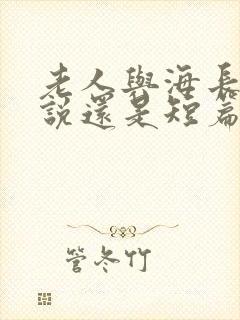 老人與海長
說還是短篇
管冬竹